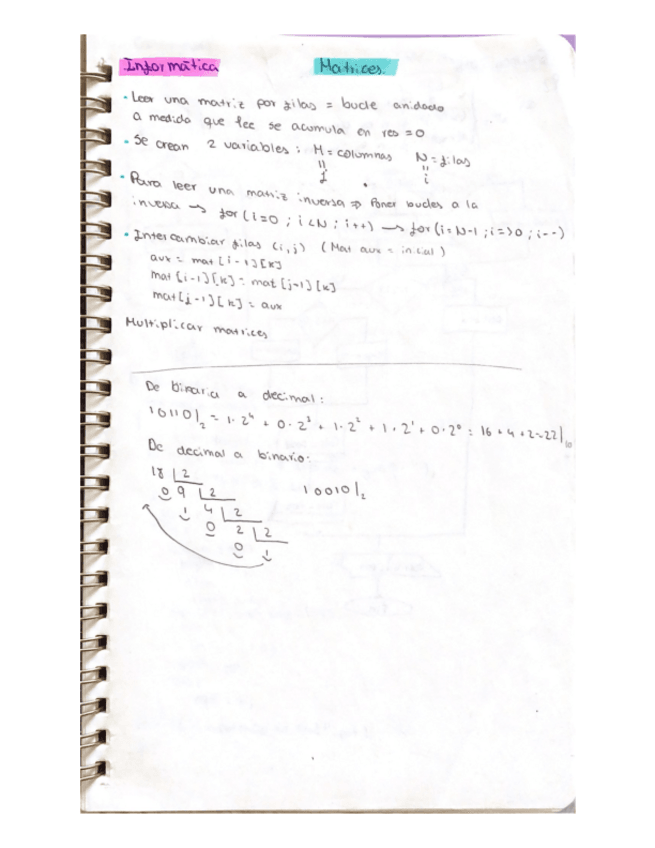 Informática
Matrices.
· Leer una matriz por filas = bucle anidado
a medida que lee se acumula en res = 0
· Se crean 2 variables : M = columnas N = filas
" "
j i
· Para leer una matriz inversa => Poner bucles a la
inversa → for (i=0 ; i<N ; i++) → for (i=N-1 ; i=>0 ; i--)
· Intercambiar filas (i,j) (Mat aux = inicial)
aux = mat [i-1][k]
mat [i-1][k] = mat [j-1][k]
mat [j-1][k] = aux
Multiplicar matrices
De binaria a decimal:
10110|₂ = 1·2⁴ + 0·2³ + 1·2² + 1·2¹ + 0·2⁰ = 16 + 4 + 2 = 22|₁₀
De decimal a binario:
18 |2
0 9 |2 10010|₂
1 4 |2
0 2 |2
0 1